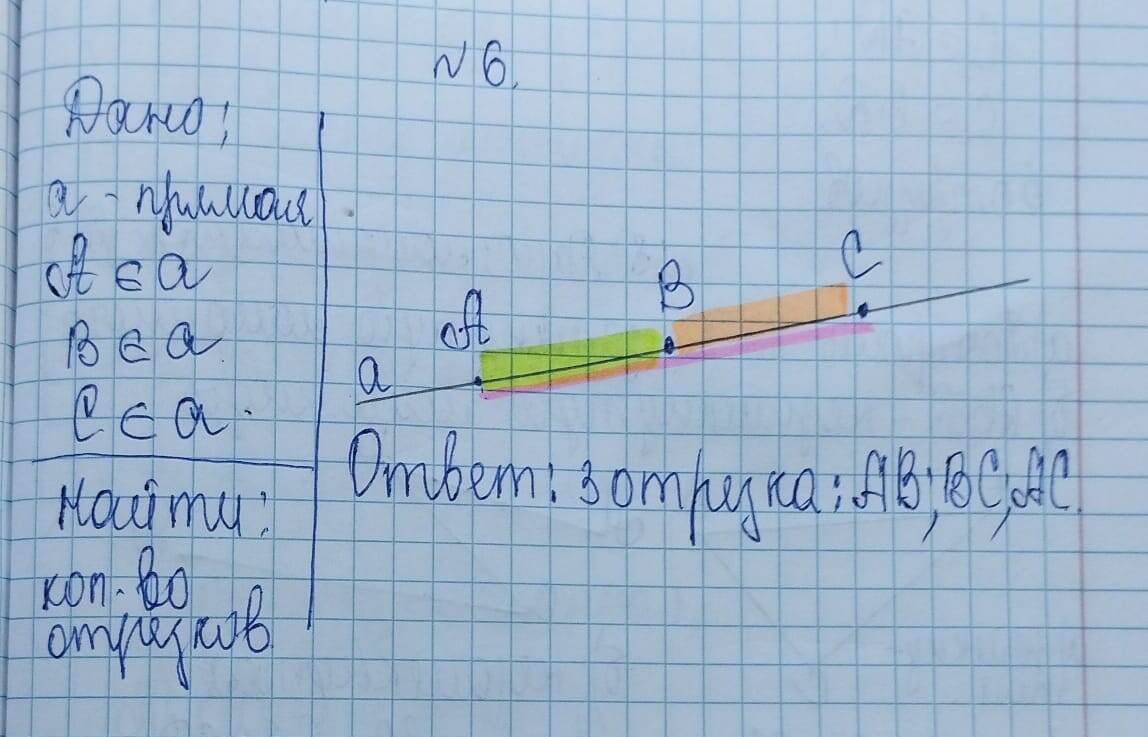 № 6.
Дано:
a - прямая
A ∈ a
B ∈ a
C ∈ a.
Найти:
кол-во
отрезков
C
B
A
a
Ответ: 3 отрезка: AB; BC; AC.